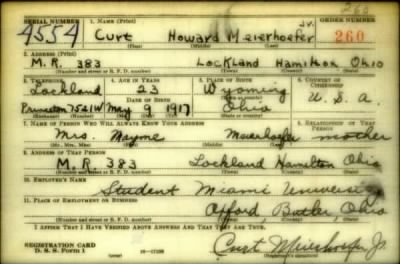 260
SERIAL NUMBER 1. NAME (Print) ORDER NUMBER
4554 Curt Howard Meierhoefer Jr. 260
(First) (Middle) (Last)
2. ADDRESS (Print)
M.R. 383 Lockland Hamilton Ohio
(Number and street or R. F. D. number) (Town) (County) (State)
3. TELEPHONE 4. AGE IN YEARS 5. PLACE OF BIRTH 6. COUNTRY OF CITIZENSHIP
Lockland 23 Wyoming
DATE OF BIRTH
Princeton 7521W May 9 1917 Ohio U.S.A.
(Exchange) (Number) (Mo.) (Day) (Yr.) (State or country)
7. NAME OF PERSON WHO WILL ALWAYS KNOW YOUR ADDRESS 8. RELATIONSHIP OF THAT PERSON
Mrs. Mayme Meierhoefer mother
(Mr., Mrs., Miss) (First) (Middle) (Last)
9. ADDRESS OF THAT PERSON
M.R. 383 Lockland Hamilton Ohio
(Number and street or R. F. D. number) (Town) (County) (State)
10. EMPLOYER'S NAME
Student Miami University
11. PLACE OF EMPLOYMENT OR BUSINESS
Oxford Butler Ohio
(Number and street or R. F. D. number) (Town) (County) (State)
I AFFIRM THAT I HAVE VERIFIED ABOVE ANSWERS AND THAT THEY ARE TRUE.
REGISTRATION CARD
D. S. S. Form 1 Curt Meierhoefer Jr.